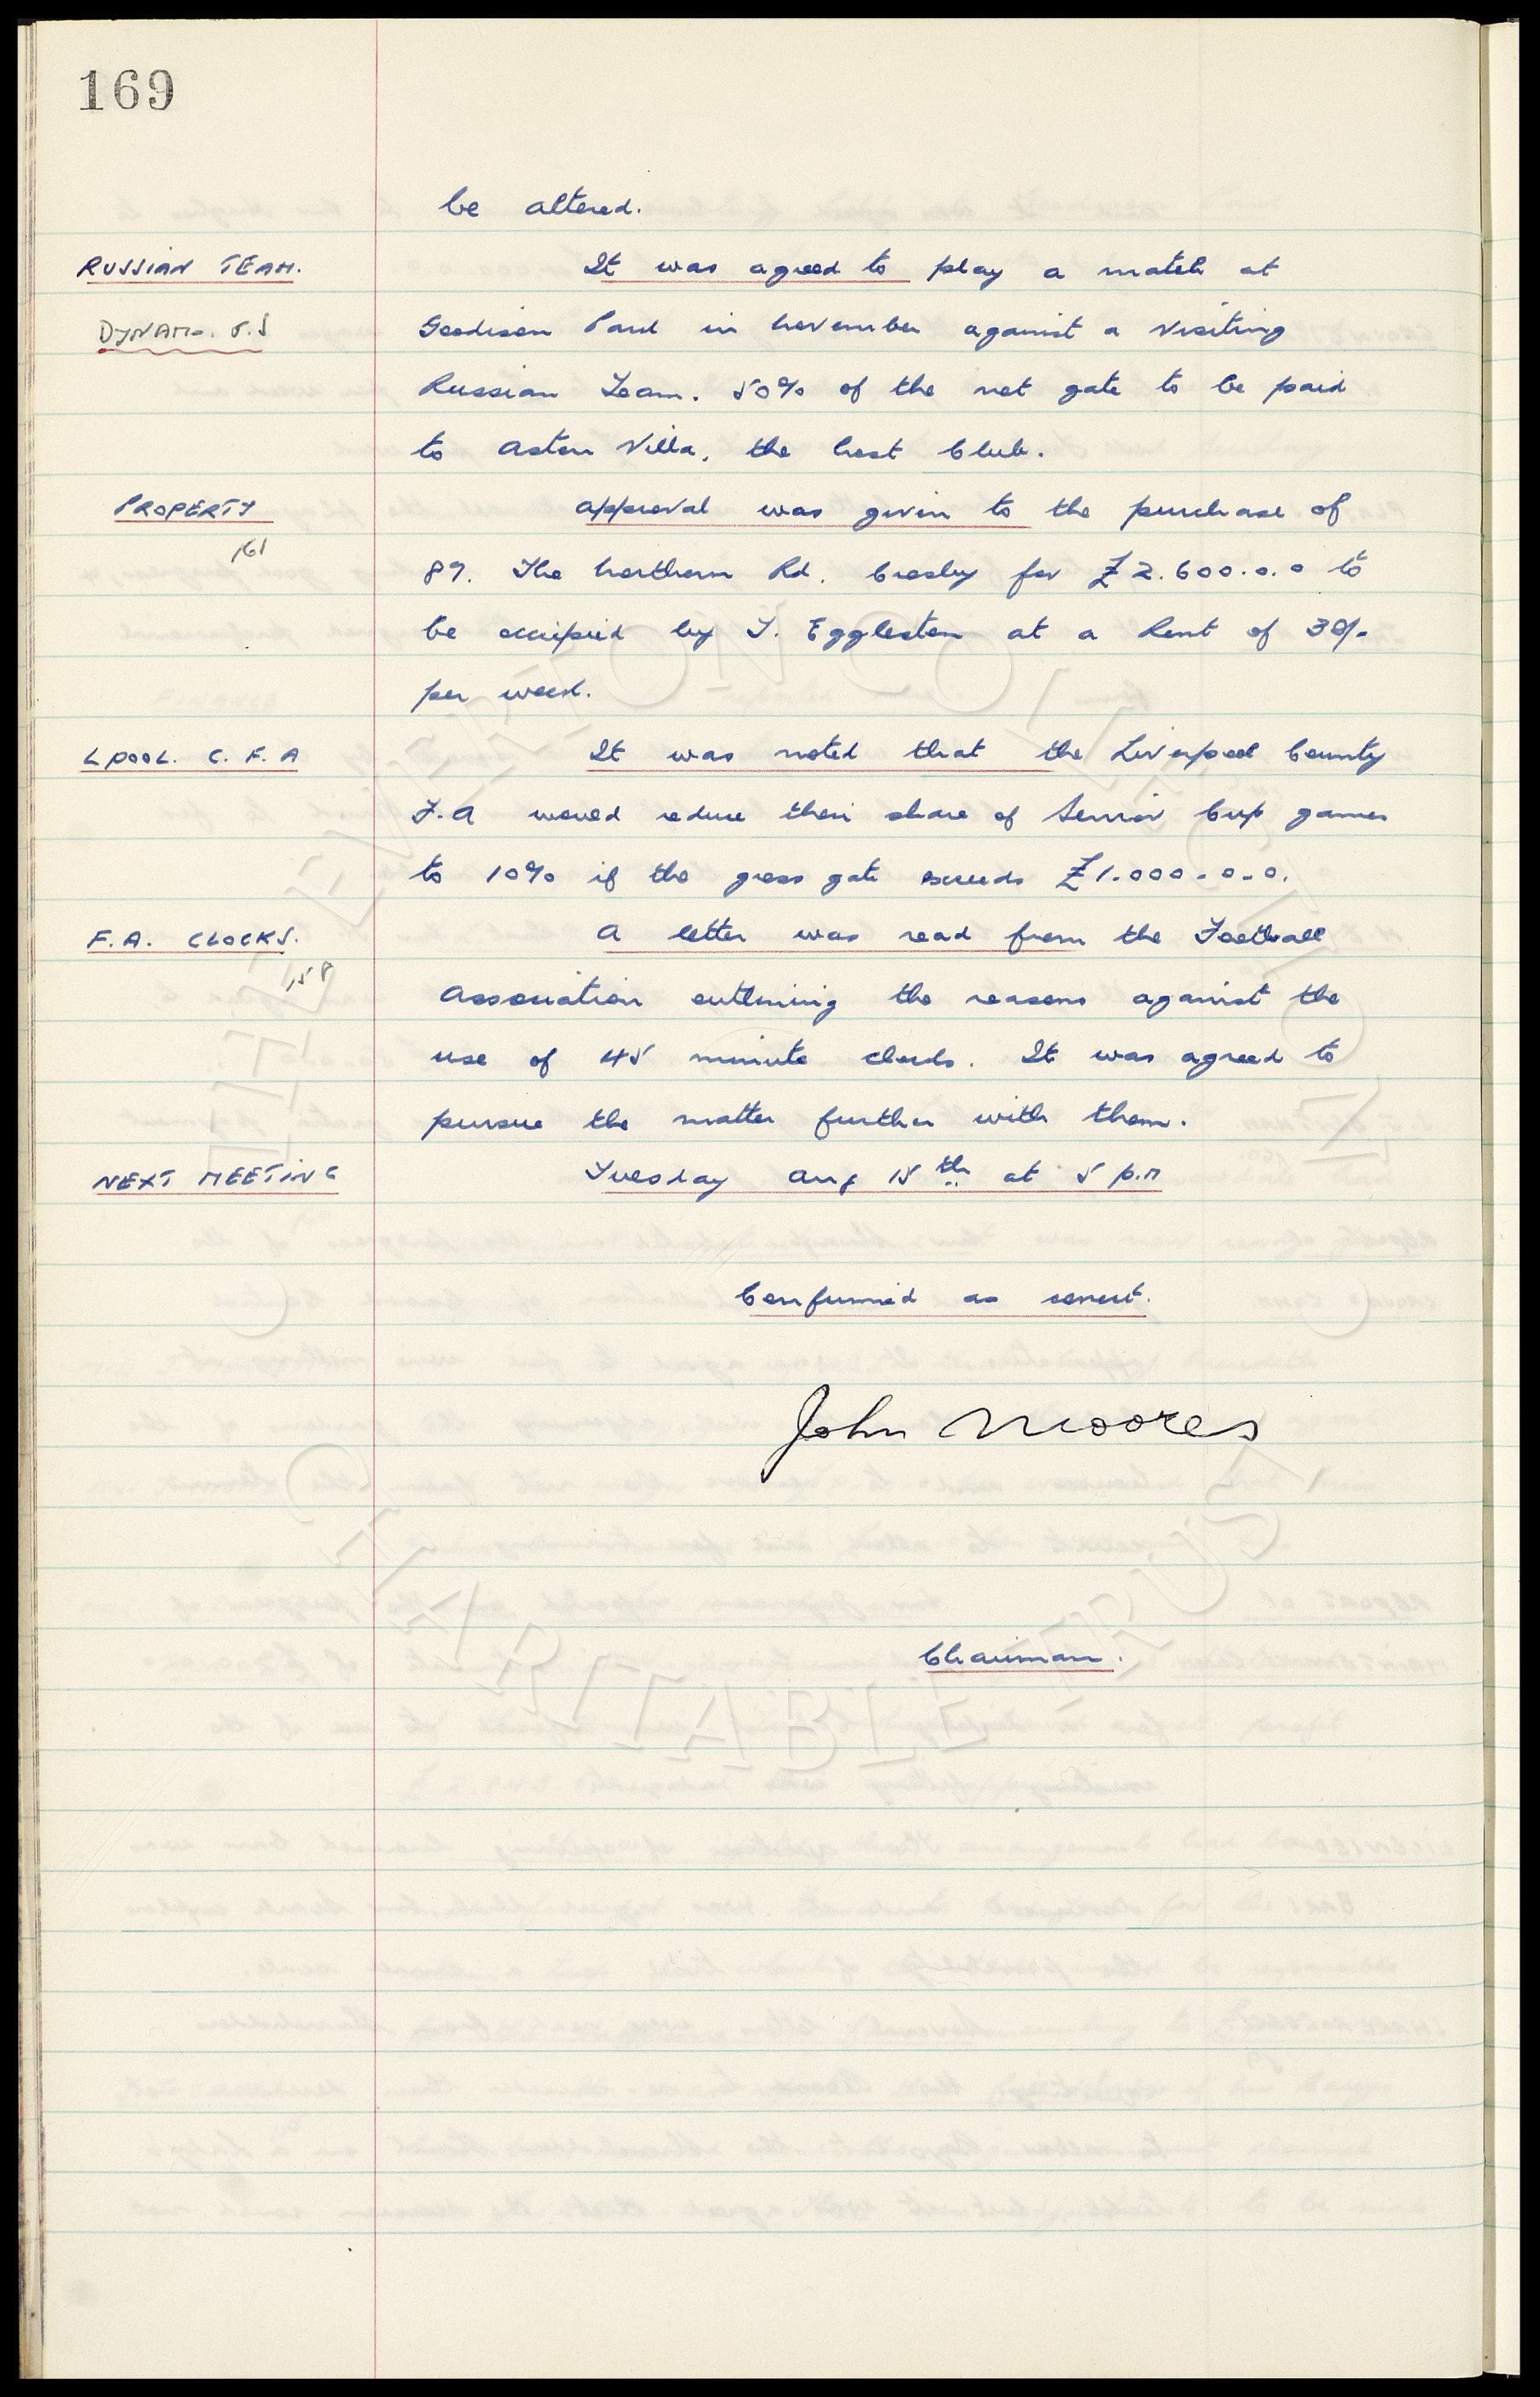 169
be altered.
RUSSIAN TEAM. It was agreed to play a match at
DYNAMO. Goodison Park in November against a visiting
Russian Team. 50% of the net gate to be paid
to Aston Villa, the host Club.
PROPERTY Approval was given to the purchase of
161
89. The Northern Rd. Crosby for £2.600.0.0 to
be occupied by T. Eggleston at a Rent of 30/-
per week.
LPOOL. C. F. A It was noted that the Liverpool County
F.A would reduce their share of Senior Cup games
to 10% if the gross gate exceeds £1.000-0-0.
F.A. CLOCKS. A letter was read from the Football
158
Association outlining the reasons against the
use of 45 minute clocks. It was agreed to
pursue the matter further with them.
NEXT MEETING Tuesday Aug 15th at 5 p.m
Confirmed as correct.
John Moores
Chairman.
THE EVERTON COLLECTION
CHARITABLE TRUST